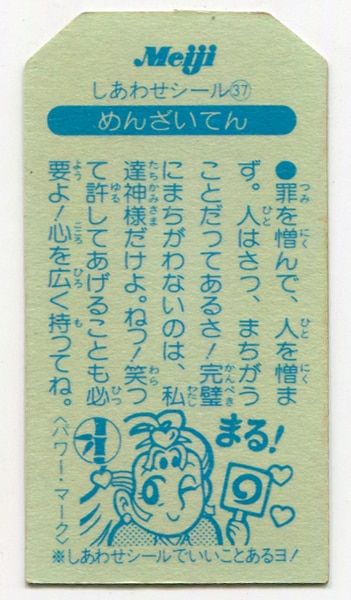 Meiji
しあわせシール㊲
めんざいてん
●罪を憎んで、人を憎ま
ず。人はさっ、まちがう
ことだってあるさ!完璧
にまちがわないのは、私
達神様だけよ。ねっ!笑っ
て許してあげることも必
要よ!心を広く持ってね。
まる!
〈パワー・マーク〉
※しあわせシールでいいことあるヨ!